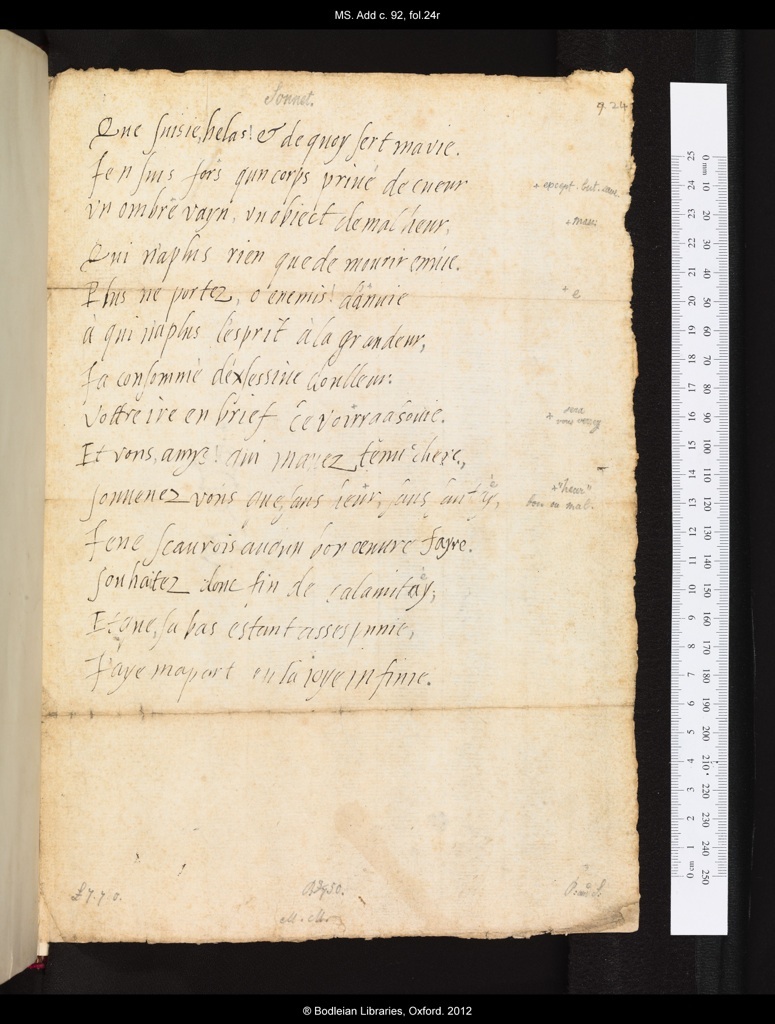 MS. Add c. 92, fol.24r
Sonnet.
Que suisie, helas! & de quoy sert ma vie.
Ien suis fors qun corps priué de cueur
vn ombre vayn, vn obiect de mal heur,
Qui na plus rien que de mourir enuie.
Plus ne portez, o enemis! d'anuie
à qui n'a plus l'esprit à la grandeur,
Ia consommé d'exsessiue doulleur:
Vottre ire en brief ce voirra asouie.
Et vous, amys! qui m'auez tenu chere,
souuenez vous que sans heur, sans
Ie ne scaurois aucun bon oeuure fayre.
souhaitez donc fin de calamitay,
Et que, sa bas estant asses punie,
I'aye ma part en la ioye infinie.
+ except. but
+ e
+ "heur"
bon ou mal.
£7.7.0.
® Bodleian Libraries, Oxford. 2012
0 mm 10 20 30 40 50 60 70 80 90 100 110 120 130 140 150 160 170 180 190 200 210 220 230 240 250
25 24 23 22 21 20 19 18 17 16 15 14 13 12 11 10 9 8 7 6 5 4 3 2 1 0 cm